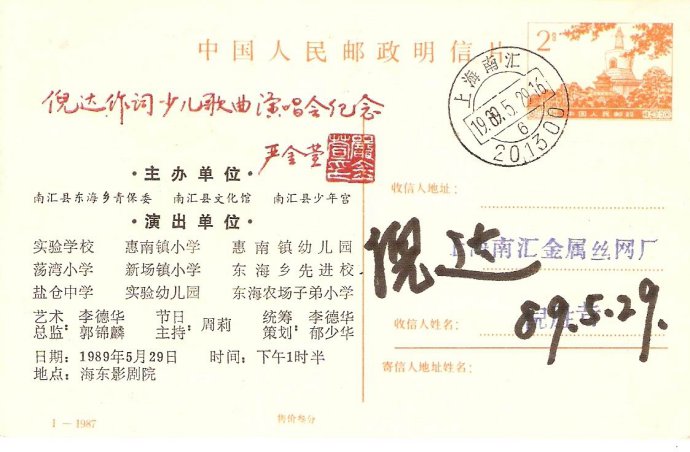 中国人民邮政明信片
2分
中国人民邮政
上海南汇
1989.5.29.16
6
201300
倪达作词少儿歌曲演唱会纪念
严金萱
·主办单位·
南汇县东海乡青保委 南汇县文化馆 南汇县少年宫
·演出单位·
实验学校 惠南镇小学 惠南镇幼儿园
荡湾小学 新场镇小学 东海乡先进校
盐仓中学 实验幼儿园 东海农场子弟小学
艺术总监：李德华 郭锦麟 节目主持：周莉 统筹策划：李德华 郁少华
日期：1989年5月29日 时间：下午1时半
地点：海东影剧院
收信人地址：
上海南汇金属丝网厂
倪达
89.5.29.
收信人姓名：
寄信人地址姓名：
1－1987
售价叁分